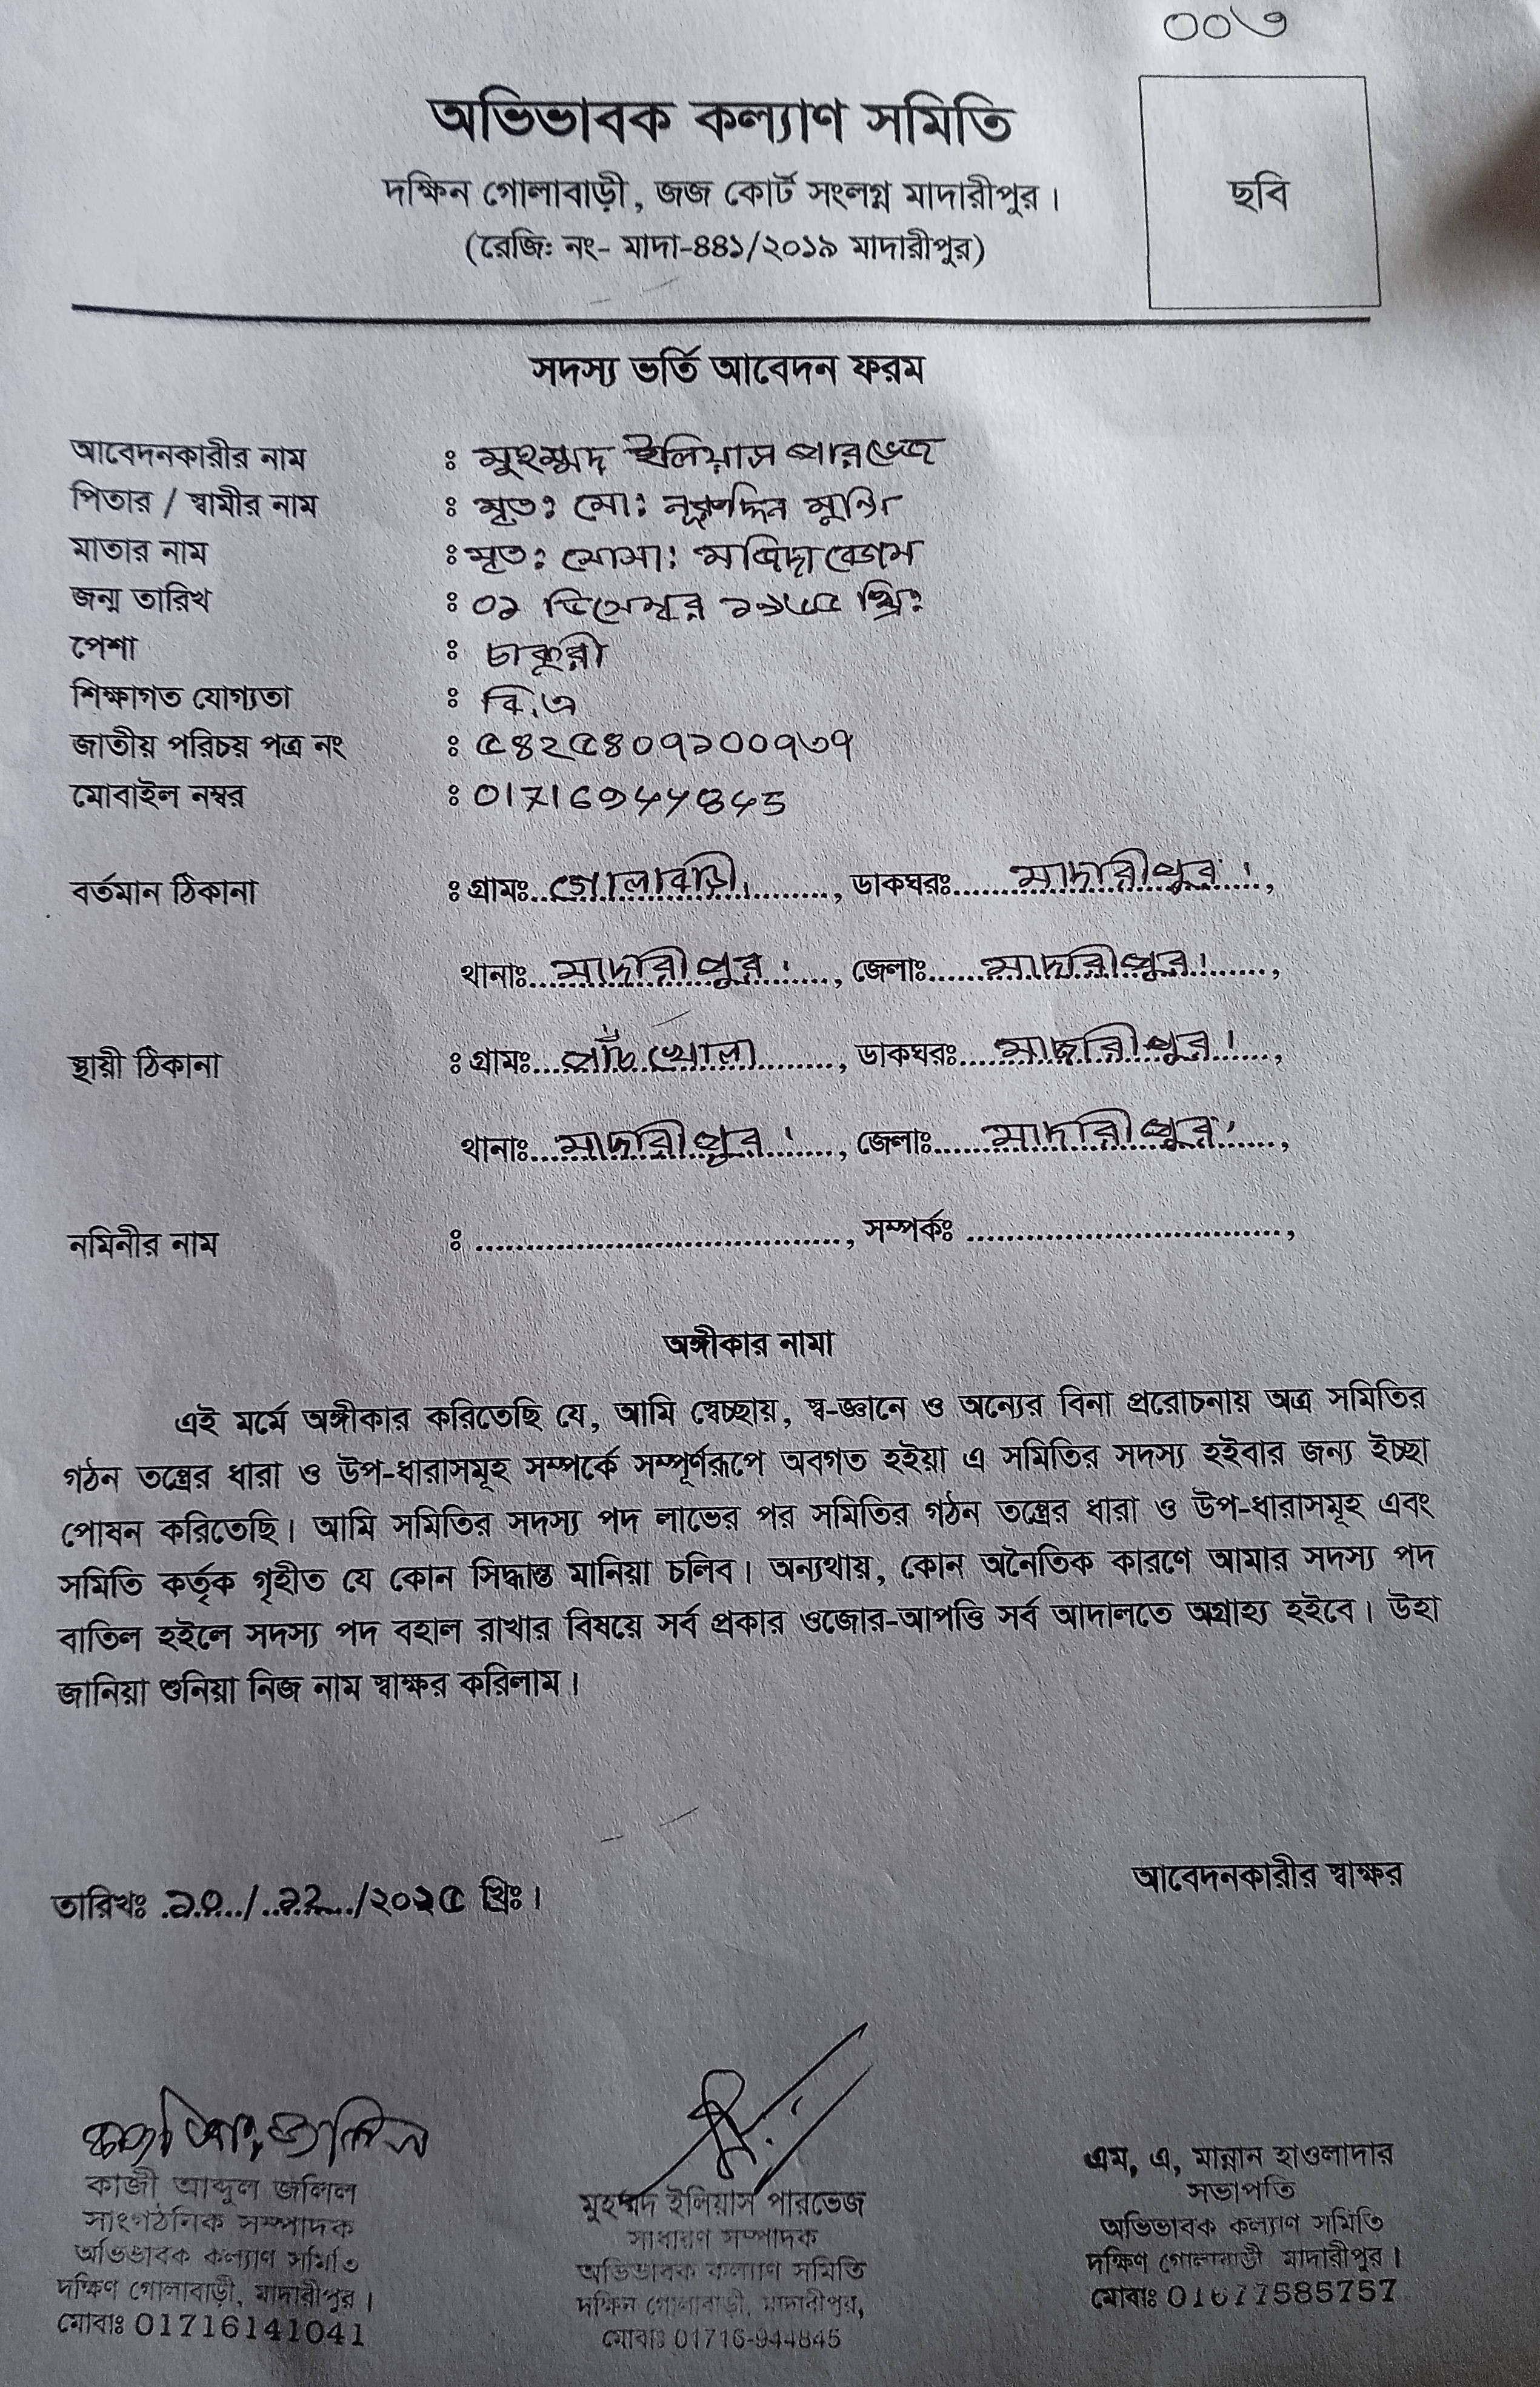 ০০৩
অভিভাবক কল্যাণ সমিতি
দক্ষিন গোলাবাড়ী, জজ কোর্ট সংলগ্ন মাদারীপুর।
(রেজিঃ নং- মাদা-৪৪১/২০১৯ মাদারীপুর)
ছবি
সদস্য ভর্তি আবেদন ফরম
আবেদনকারীর নাম : মুহম্মদ ইলিয়াস পারভেজ
পিতার / স্বামীর নাম : মৃত: মো: নূরুদ্দিন মুন্সি
মাতার নাম : মৃত: মোসা: মাজিদা বেগম
জন্ম তারিখ : ০১ ডিসেম্বর খ্রি:
পেশা : চাকুরী
শিক্ষাগত যোগ্যতা : বি.এ
জাতীয় পরিচয় পত্র নং : ৫৪২৫৪০৭১০০৭৩৭
মোবাইল নম্বর : 01716944845
বর্তমান ঠিকানা : গ্রামঃ গোলাবাড়ী, ডাকঘরঃ মাদারীপুর।,
থানাঃ মাদারীপুর।, জেলাঃ মাদারীপুর।,
স্থায়ী ঠিকানা : গ্রামঃ পাঁচখোলা, ডাকঘরঃ মাদারীপুর।,
থানাঃ মাদারীপুর।, জেলাঃ মাদারীপুর।,
নমিনীর নাম : ...................................., সম্পর্কঃ ...............................,
অঙ্গীকার নামা
এই মর্মে অঙ্গীকার করিতেছি যে, আমি স্বেচ্ছায়, স্ব-জ্ঞানে ও অন্যের বিনা প্ররোচনায় অত্র সমিতির
গঠন তন্ত্রের ধারা ও উপ-ধারাসমূহ সম্পর্কে সম্পূর্ণরূপে অবগত হইয়া এ সমিতির সদস্য হইবার জন্য ইচ্ছা
পোষন করিতেছি। আমি সমিতির সদস্য পদ লাভের পর সমিতির গঠন তন্ত্রের ধারা ও উপ-ধারাসমূহ এবং
সমিতি কর্তৃক গৃহীত যে কোন সিদ্ধান্ত মানিয়া চলিব। অন্যথায়, কোন অনৈতিক কারণে আমার সদস্য পদ
বাতিল হইলে সদস্য পদ বহাল রাখার বিষয়ে সর্ব প্রকার ওজোর-আপত্তি সর্ব আদালতে অগ্রাহ্য হইবে। উহা
জানিয়া শুনিয়া নিজ নাম স্বাক্ষর করিলাম।
আবেদনকারীর স্বাক্ষর
তারিখঃ ১০/১২/২০২৫ খ্রিঃ।
কাজী আব্দুল জলিল
কাজী আব্দুল জলিল
সাংগঠনিক সম্পাদক
অভিভাবক কল্যাণ সমিতি
দক্ষিণ গোলাবাড়ী, মাদারীপুর।
মোবাঃ 01716141041
মুহম্মদ ইলিয়াস পারভেজ
সাধারণ সম্পাদক
অভিভাবক কল্যাণ সমিতি
দক্ষিন গোলাবাড়ী, মাদারীপুর,
মোবাঃ 01716-944845
এম, এ, মান্নান হাওলাদার
সভাপতি
অভিভাবক কল্যাণ সমিতি
দক্ষিণ গোলাবাড়ী মাদারীপুর।
মোবাঃ 01677585757